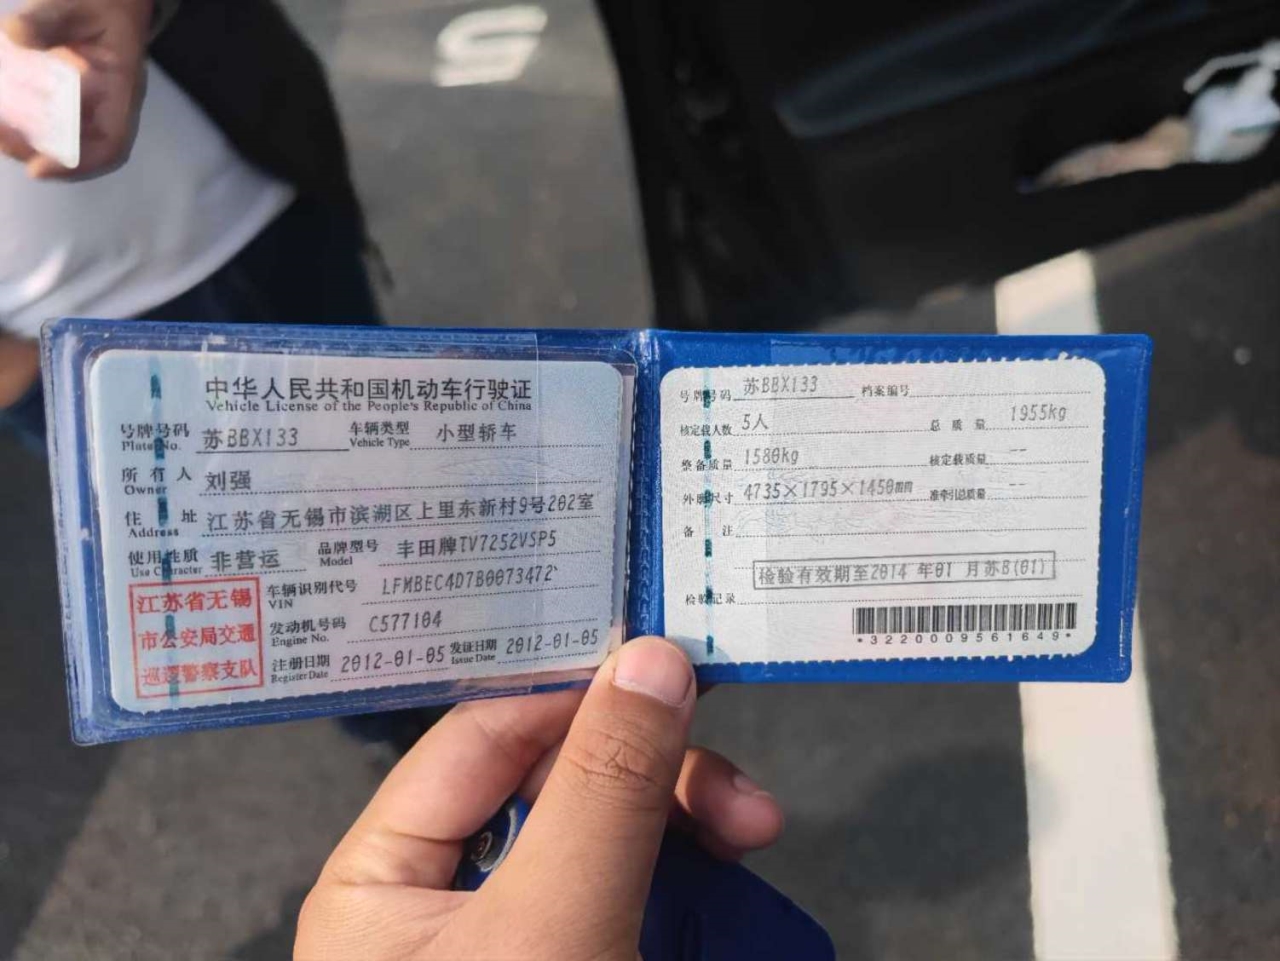 中华人民共和国机动车行驶证
Vehicle License of the People's Republic of China
号牌号码 苏BBX133 车辆类型 小型轿车
Plate No. Vehicle Type
所有人 刘强
Owner
住址 江苏省无锡市滨湖区上里东新村9号202室
Address
使用性质 非营运 品牌型号 丰田牌TV7252VSP5
Use Character Model
江苏省无锡
市公安局交通
巡逻警察支队
车辆识别代号 LFMBEC4D7B0073472
VIN
发动机号码 C577104
Engine No.
注册日期 2012-01-05 发证日期 2012-01-05
Register Date Issue Date
号牌号码 苏BBX133 档案编号
核定载人数 5人 总质量 1955kg
整备质量 1580kg 核定载质量 --
外廓尺寸 4735×1795×1450mm 准牵引总质量 --
备注
检验有效期至2014年01月苏B(01)
检验记录
*3220009561649*
5